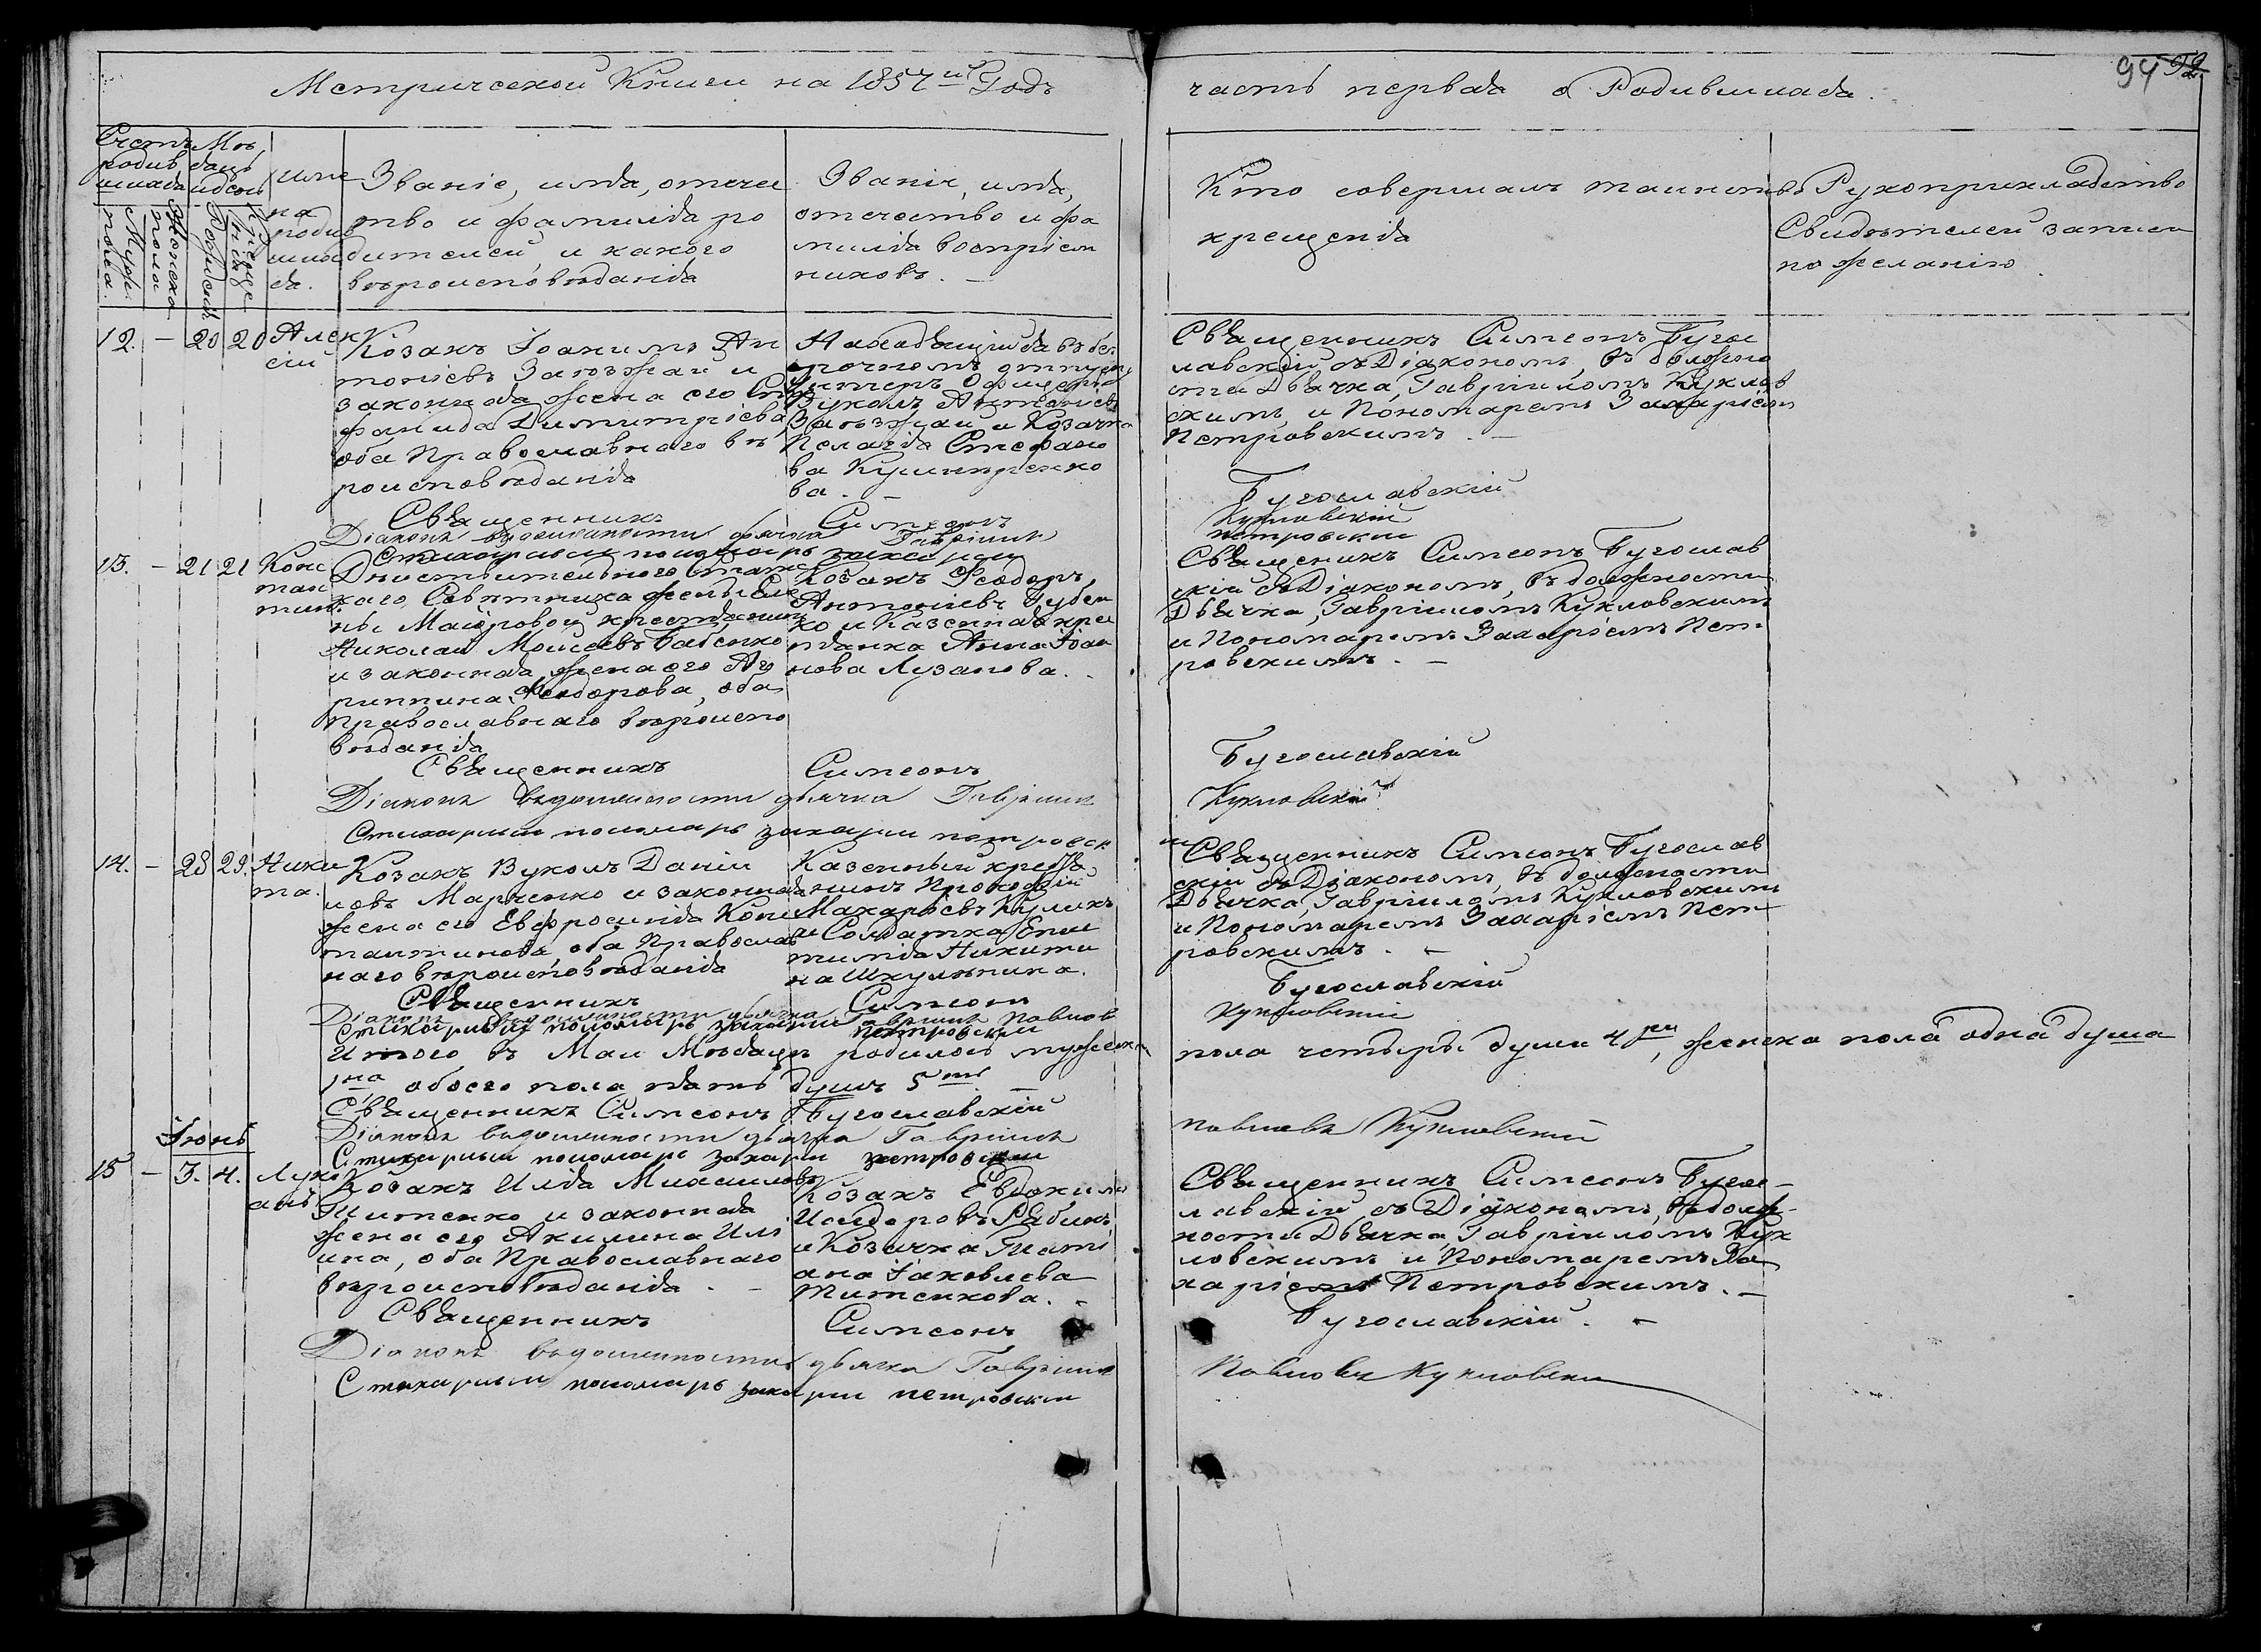 Метрической Книги на 1857й Годъ
часть первая о Родившихся.
94
Счетъ родив шихся
Мужеска пола.
Женска пола
Мѣ сяцъ и день
Рожденія
Крещенія
Имена родив шихся.
Званіе, имя, отечес
тво и фамилія ро
дителей, и какого
вѣроисповѣданія
Званіе, имя,
отечество и фа
милія воспріем
никовъ. —
Кто совершалъ таинство
крещенія
Рукоприкладство
Свидѣтелей записи
по желанію.
12. — 20 20 Алек
сій
Козакъ Іоакимъ Ан
тоніевъ Заѣзжай и
законная жена его Сте
фанида Димитріева,
оба Православнаго вѣ
роисповѣданія
Находящійся въ без
срочномъ отпуску
Унтеръ Офицеръ
Вуколъ Антоніевъ
Заѣзжай и Козачка
Пелагія Стефано
ва Кушниренко
ва. —
Священникъ Симеонъ Буго
славскій съ Діакономъ, въ должно
сти Дьячка, Гавріиломъ Куклов
скимъ, и Пономаремъ Захаріемъ
Петровскимъ. —
Священникъ Симеонъ Бугославскій
Діаконъ въ должности дьячка Гавріилъ Кукловскій
Стихарный пономарь Захарій Петровскій
13. — 21 21 Конс
тан
тинъ.
Дѣйствительного Статс
каго Совѣтника жены Еле
ны Маіоровой крестьянинъ
Николай Моисеевъ Бабенко
и законная жена его Аг
риппина Ѳеодорова, оба
Православнаго вѣроиспо
вѣданія
Козакъ Ѳеодоръ
Антоніевъ Губен
ко и Казенная крес
тьянка Анна Іоан
нова Лузанова. -
Священникъ Симеонъ Бугослав
скій съ Діакономъ, въ должности
Дьячка, Гавріиломъ Кукловскимъ
и Пономаремъ Захаріемъ Пет-
ровскимъ. —
Священникъ Симеонъ Бугославскій
Діаконъ въ должности дьячка Гавріилъ Кукловскій
Стихарный пономарь Захарій Петровскій
14. — 28 29. Ники
та.
Козакъ Вуколъ Даніи
ловъ Марченко и законная
жена его Евфросинія Конс
тантинова, оба Православ
наго вѣроисповѣданія
Казенный кресть
янинъ Прокофій
Макаріевъ Куликъ
и Солдатка Епис
тимія Никити
на Шкулѣпина.
Священникъ Симеонъ Бугослав
скій съ Діакономъ, въ должности
Дьячка, Гавріиломъ Кукловскимъ
и Пономаремъ Захаріемъ Пет
ровскимъ. —
Священникъ Симеонъ Бугославскій
Діаконъ въ должности дьячка Гавріилъ Павловъ Кукловскій
Стихарный пономарь Захарій Петровскій
Итого въ Маи Мѣсяцѣ родилось мужеска пола четыри души 4ри, женска пола одна душа
1на обоего пола пять душъ 5ть. —
Священникъ Симеонъ Бугославскій
Діаконъ въ должности дьячка Гавріилъ Павловъ Кукловскій
Стихарный пономарь Захарій Петровскій
Іюнь
15 — 3. 4. Луки
анъ
Козакъ Илія Михаиловъ
Титенко и законная
жена его Акилина Илі
ина, оба Православнаго
вѣроисповѣданія. —
Козакъ Евдокимъ
Исидоровъ Рябикъ
и Козачка Тати
ана Іаковлева
Титенкова. -
Священникъ Симеонъ Буго-
славскій съ Діакономъ, въ долж-
ности Дьячка, Гавріиломъ Кук
ловскимъ и Пономаремъ За
харіемъ Петровскимъ. —
Священникъ Симеонъ Бугославскій. —
Діаконъ въ должности дьячка Гавріилъ Павловъ Кукловскій
Стихарный пономарь Захарій Петровскій